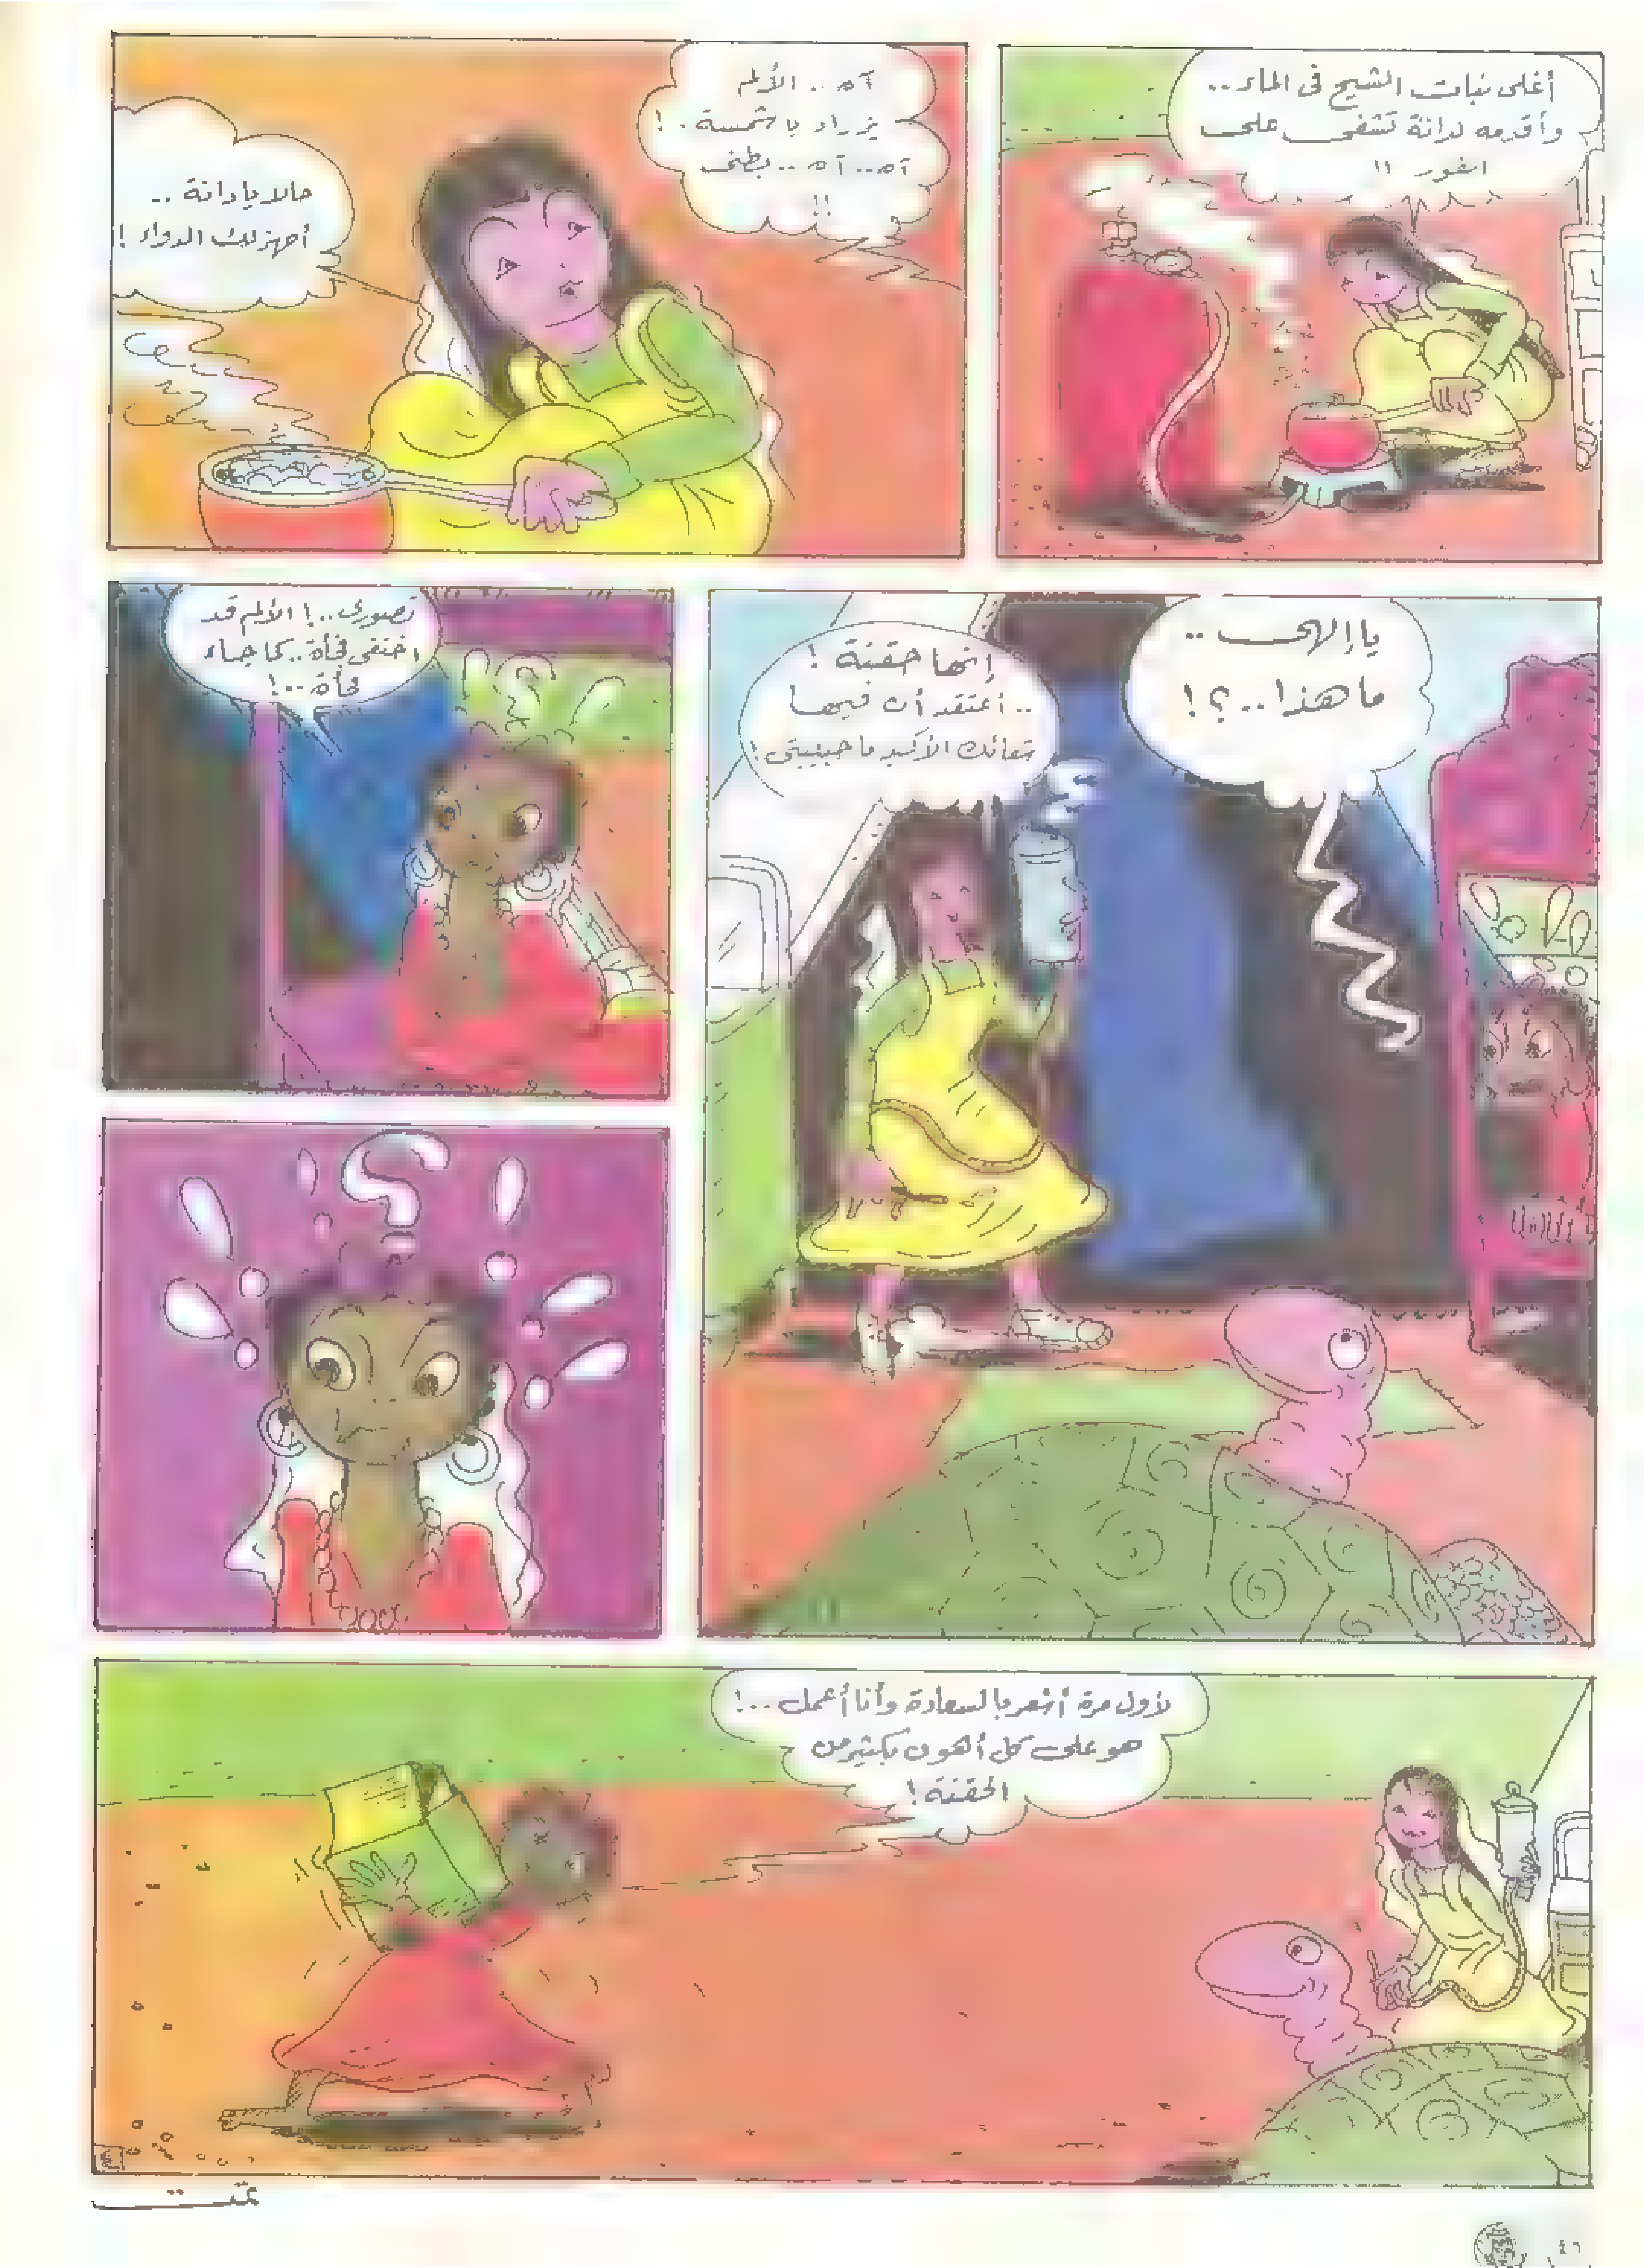 أغلى نبات الشيح فى الماء..
وأقدمه لدانة تشفى على
الفور !!
آه .. الألم
يزداد يا شمسة ..!
آه .. آه .. بطنى
!!
حالا يا دانة ..
أجهز لك الدواء !!
يا إلهى ..
ما هذا..؟!
إنها حقنة !
.. أعتقد أن فيها
شفائك الأكيد يا حبيبتى !
تصورى ..! الألم قد
اختفى فجأة .. كما جاء
فجأة ..!
؟
لأول مرة أشعر بالسعادة وأنا أعمل ..!
هو على كل أهون بكثير من
الحقنة !
تمت
٤٦